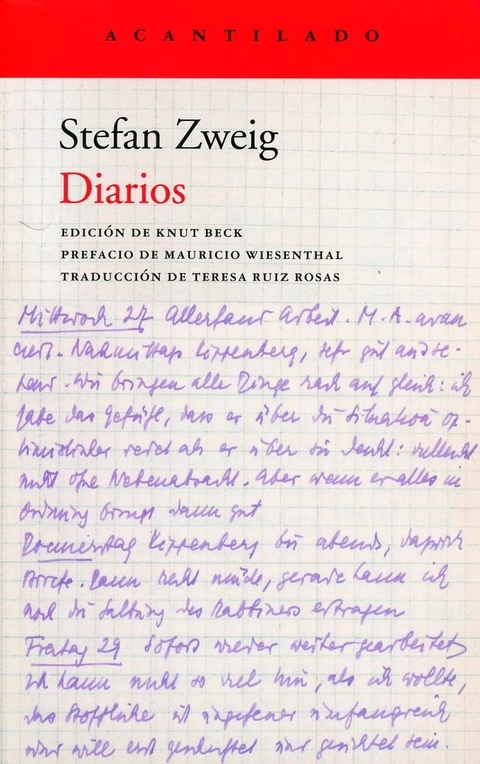 ACANTILADO
Stefan Zweig
Diarios
EDICIÓN DE KNUT BECK
PREFACIO DE MAURICIO WIESENTHAL
TRADUCCIÓN DE TERESA RUIZ ROSAS
Mittwoch 27 Allerhand Arbeit. M. A. avan
ciert. Nachmittags Kippenberg, sehr gut
Wir bringen alle Dinge rasch auf gleich: ich
habe das Gefühl, dass er über die Situation op-
timistischer redet als er über sie denkt: vielleicht
nicht ohne Nebenabsicht. Aber wenn er alles in
Ordnung bringt dann gut
Donnerstag Kippenberg bis abends, dazwisch
Briefe. Dann recht müde, gerade kann ich
noch die Haltung des Rabbiners ertragen
Freitag 29 Sofort wieder weitergearbeitet
Ich kann nicht so viel hin, als ich wollte,
das Stoffliche ist ungeheuer umfangreich
und will erst gesichtet sein.